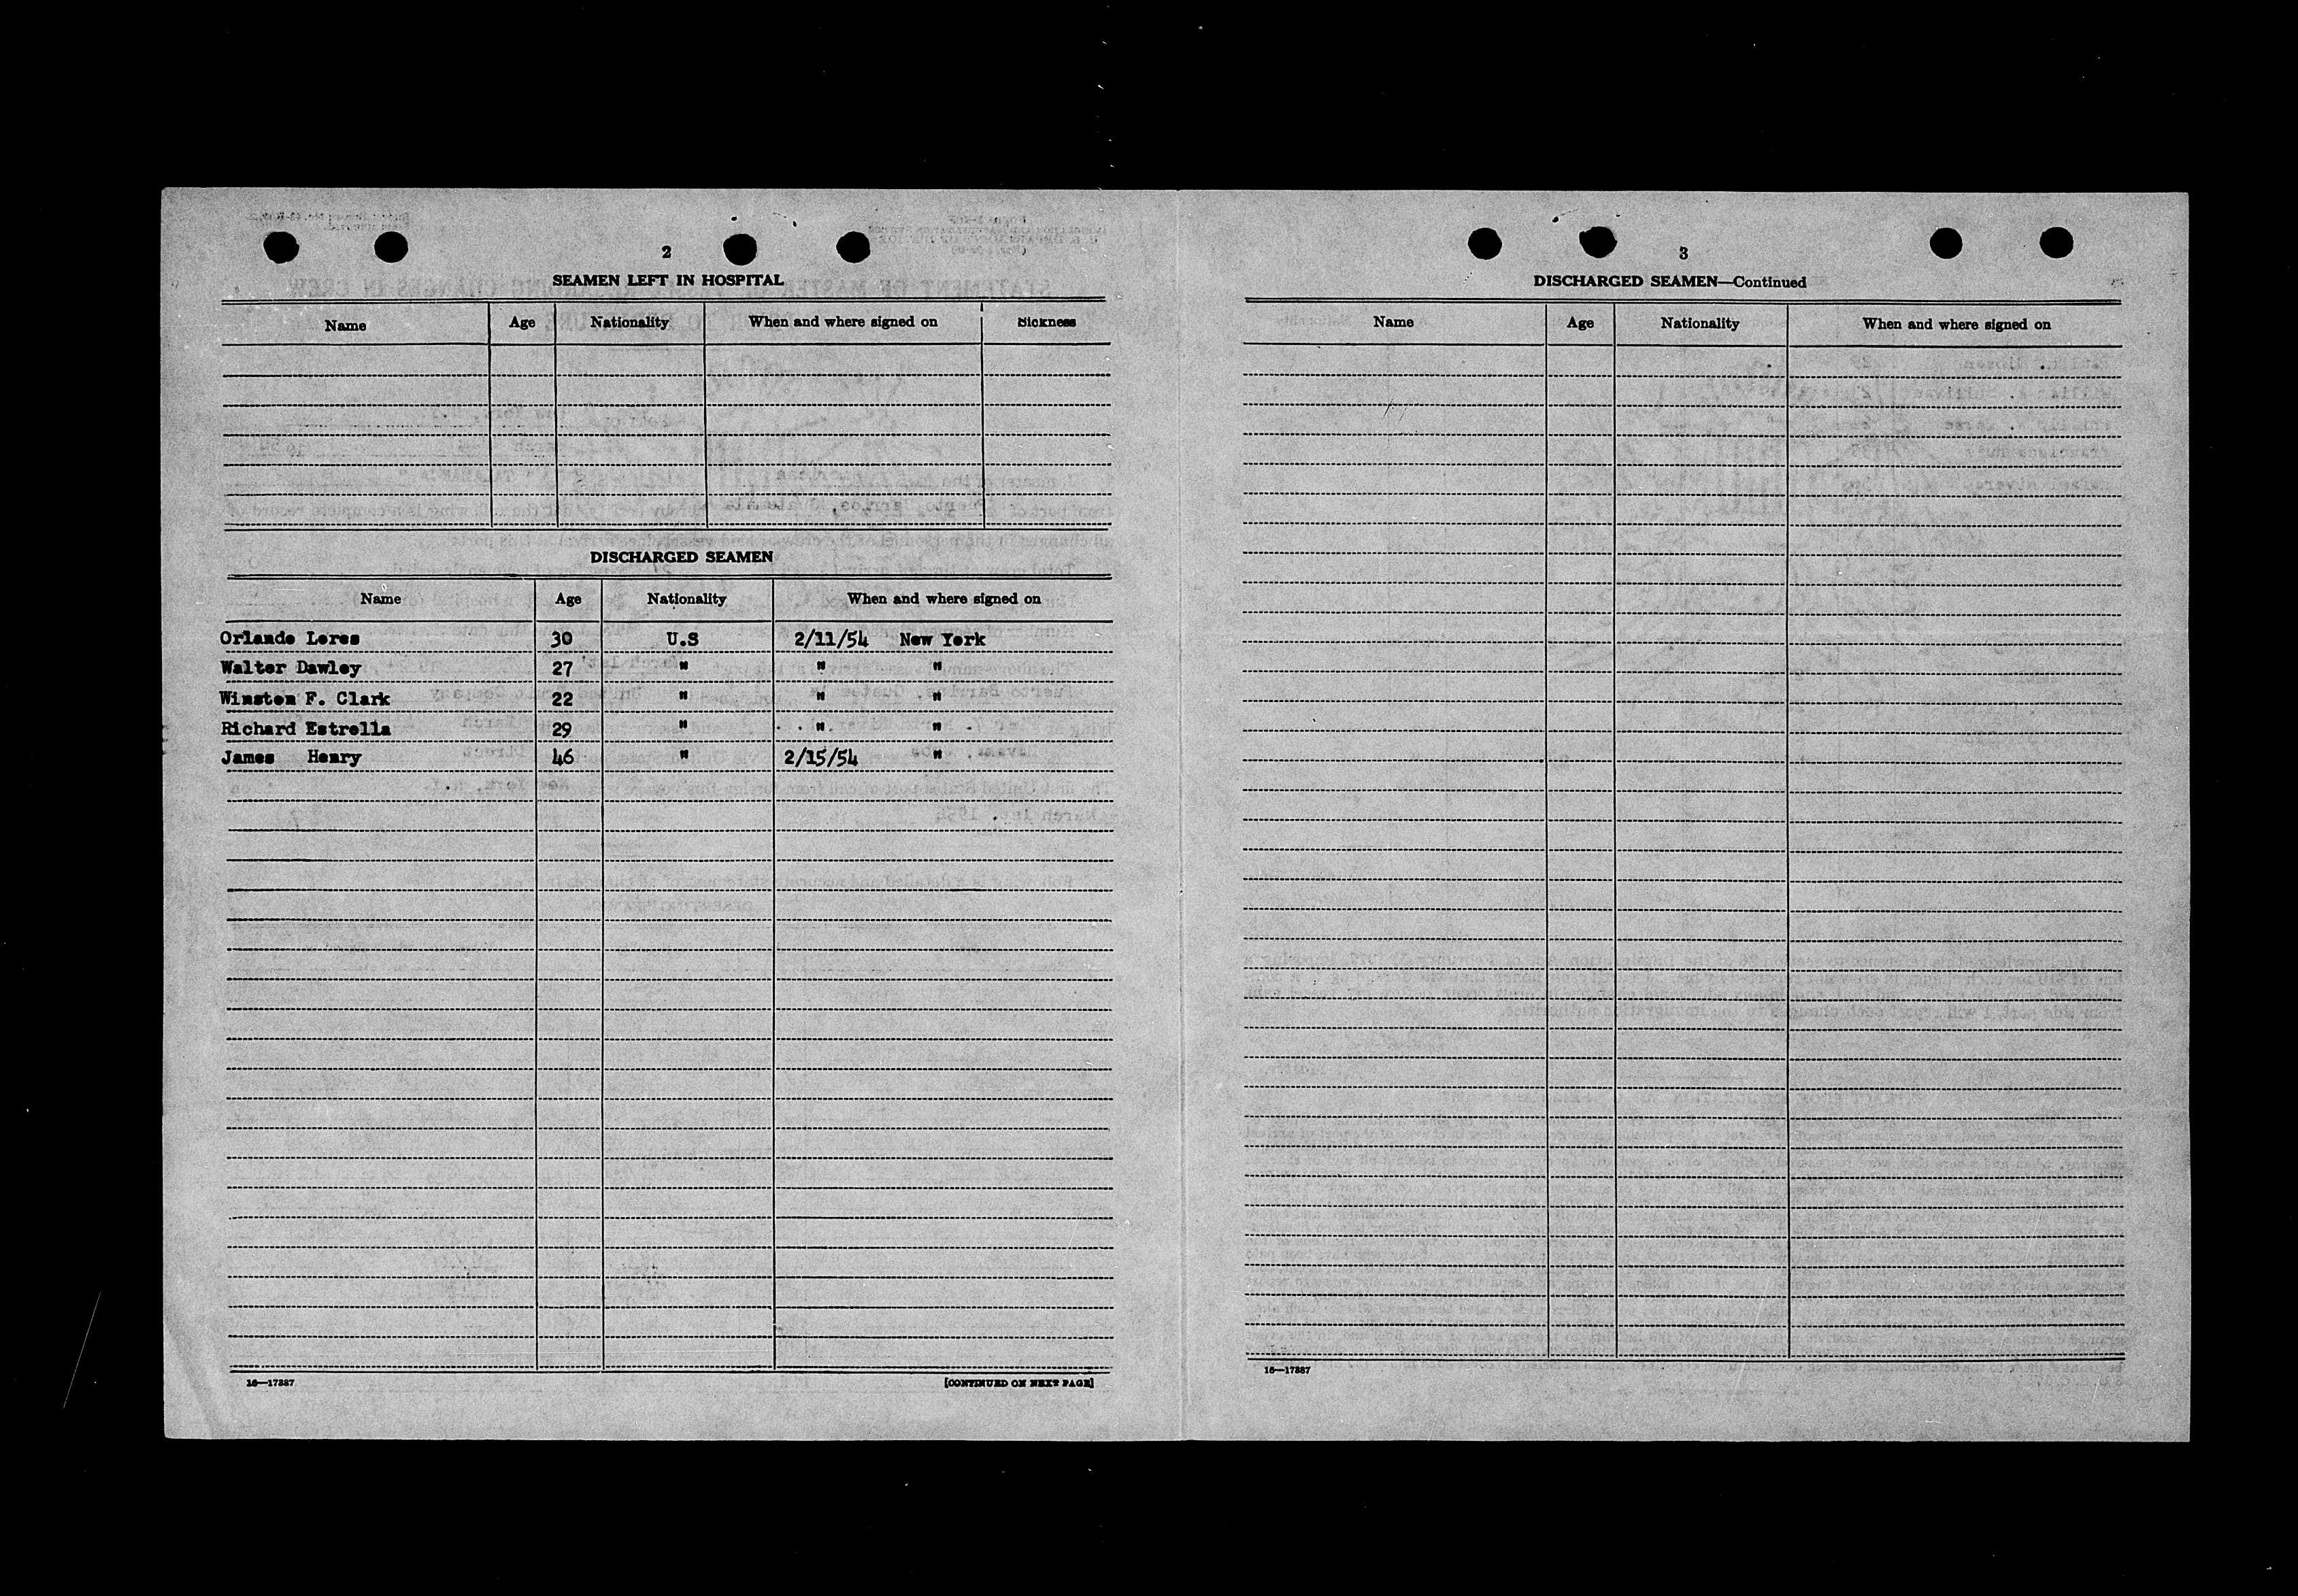 2
SEAMEN LEFT IN HOSPITAL
Name Age Nationality When and where signed on Sickness
DISCHARGED SEAMEN
Name Age Nationality When and where signed on
Orlando Lores 30 U.S 2/11/54 New York
Walter Dawley 27 " " "
Winston F. Clark 22 " " "
Richard Estrella 29 " " "
James Henry 46 " 2/15/54 "
16—17887 [CONTINUED ON NEXT PAGE]
3
DISCHARGED SEAMEN—Continued
Name Age Nationality When and where signed on
16—17887